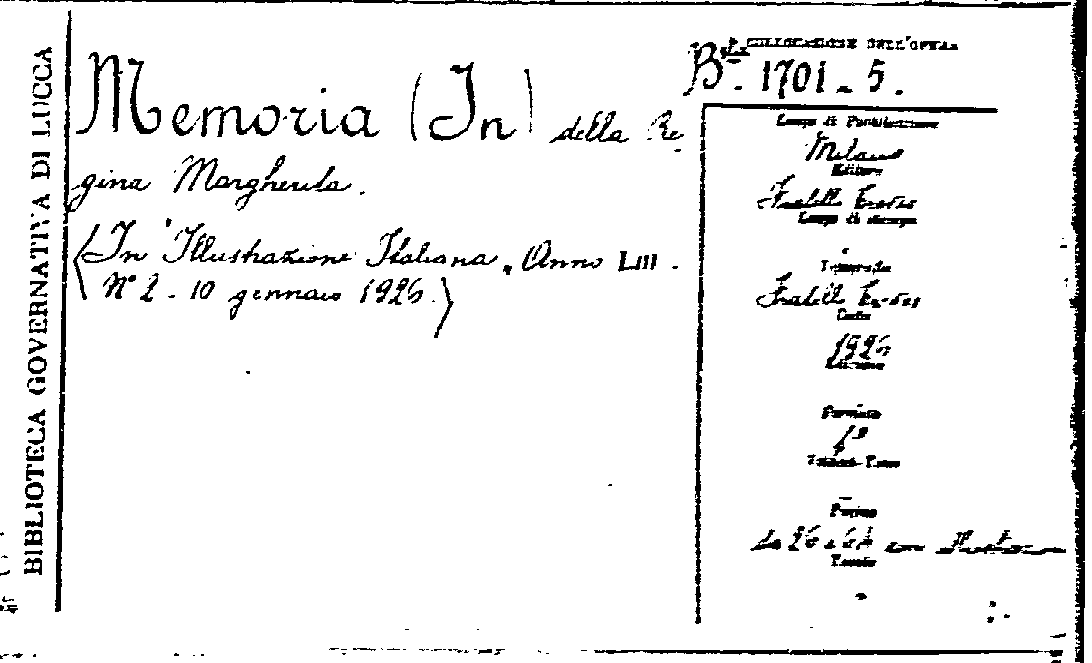 BIBLIOTECA GOVERNATIVA DI LUCCA
Memoria (In) della Re-
gina Margherita.
(In "Illustrazione Italiana„ Anno LIII.
N° 2 - 10 gennaio 1926.)
COLLOCAZIONE DELL'OPERA
B.ta 1701-5.
Luogo di Pubblicazione
Milano
Editore
Fratelli Treves
Luogo di stampa
Tipografia
Fratelli Treves
Data
1926
Edizione
Formato
f°
Pagine
da 26 a 64 con illustrazioni
Tavole